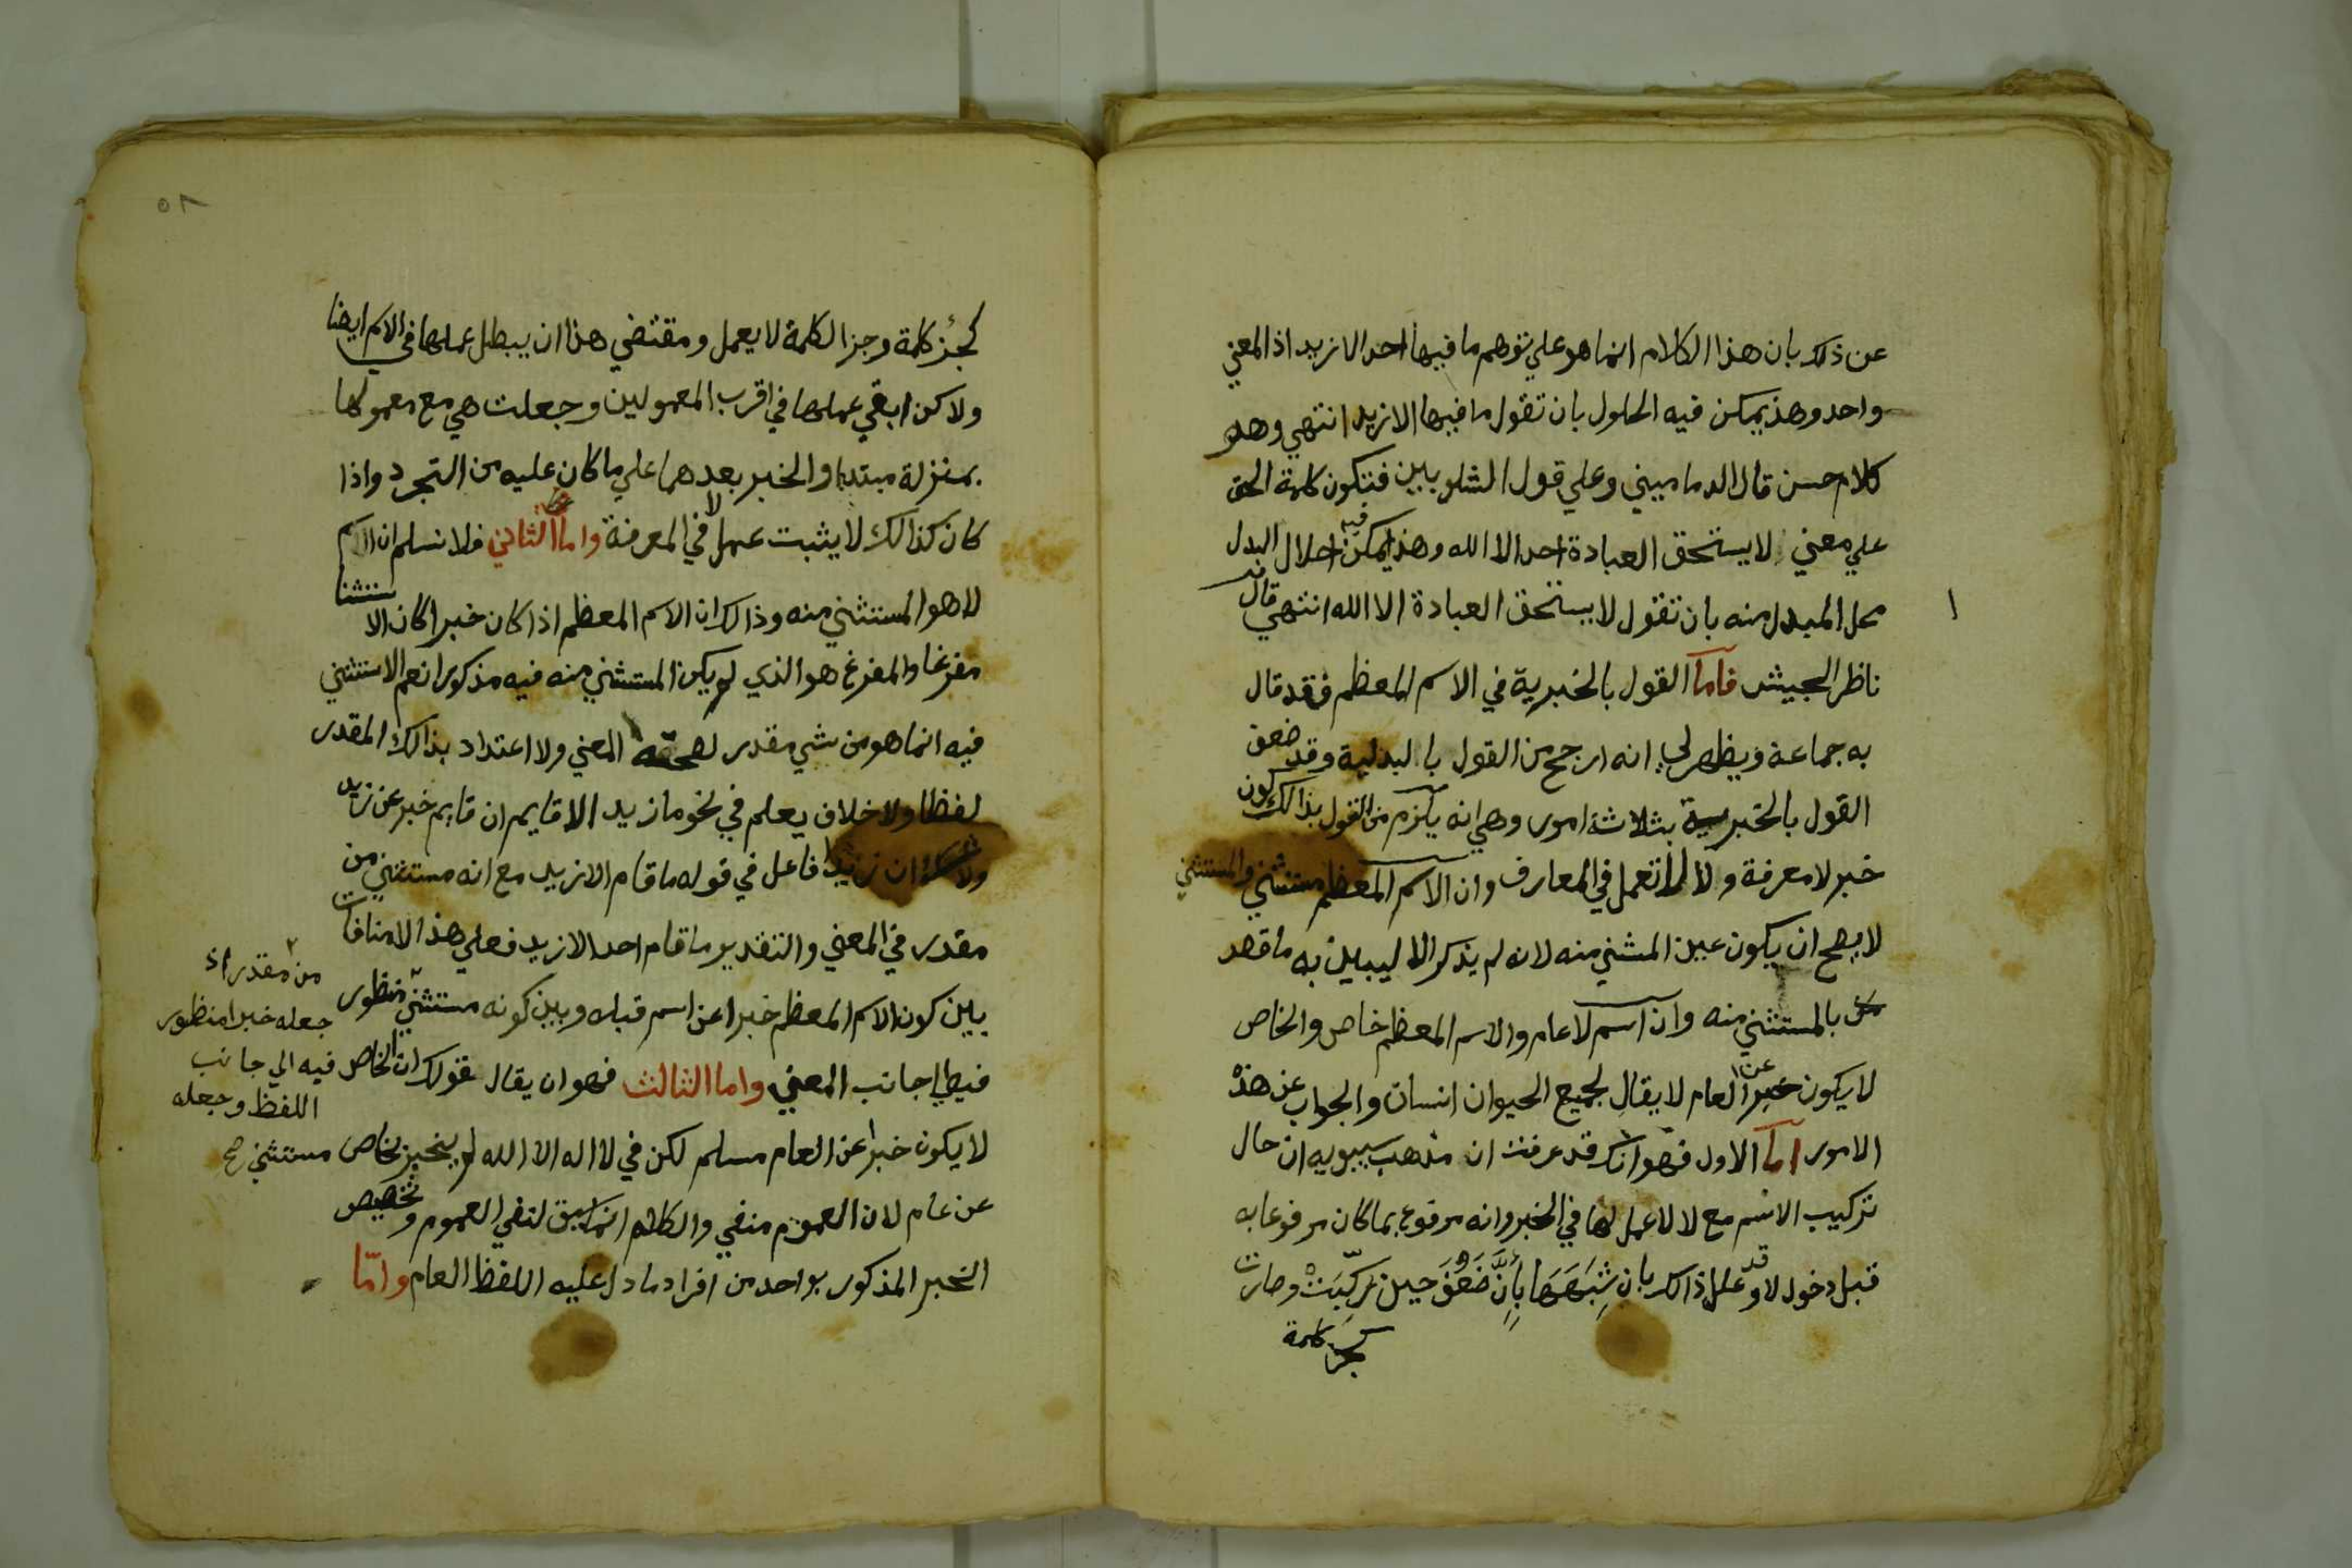 عن ذلك بان هذا الكلام انما هو علي توهم ما فيها احد الا زيد اذ المعني
واحد وهذ يمكن فيه الحلول بان تقول ما فيها الا زيد انتهي وهو
كلام حسن قال الدماميني وعلي قول الشلوبين فتكون كلمة الحق
علي معني لا يستحق العبادة احد الا الله وهذ يمكن فيه احلال البدل
محل المبدل منه بان تقول لا يستحق العبادة الا الله انتهي قال
ناظر الجيش فاما القول بالخبرية في الاسم المعظم فقد قال
به جماعة ويظهر لي انه ارجح من القول بالبدلية وقد ضعف
القول بالخبرية بثلاثة امور وهي انه يلزم من القول بذالك كون
خبر لا معرفة ولا لا تعمل في المعارف وان الاسم المعظم مستثني والمستثني
لا يصح ان يكون عين المستثني منه لانه لم يذكر الا ليبين به ما قصد
بالمستثني منه وان اسم لا عام والاسم المعظم خاص والخاص
لا يكون خبرا عن العام لا يقال لجميع الحيوان انسان والجواب عن هذه
الامور اما الاول فهو انك قد عرفت ان مذهب سيبويه ان حال
تركيب الاسم مع لا لا عمل لها في الخبر وانه مرفوع بما كان مرفوعا به
قبل دخول لا وقد علل ذالك بان شِبَهَهَا بِأَنَّ ضَعُفَ حين رُكِّبَتْ وصارت
كجز كلمة
٥٨
كجزء كلمة وجز الكلمة لا يعمل ومقتضي هذا ان يبطل عملها في الاسم ايضا
ولاكن ابقي عملها في اقرب المعمولين وجعلت هي مع معمولها
بمنزلة مبتدا والخبر بعدهما علي ما كان عليه من التجرد واذا
كان كذالك لا يثبت عمل لا في المعرفة واما الثاني فلا نسلم ان اسم
لا هو المستثني منه وذالك ان الاسم المعظم اذا كان خبرا كان الاستثنا
مفرغا والمفرغ هو الذي لم يكن المستثني منه فيه مذكورا نعم الاستثني
فيه انما هو من شي مقدر لصحة المعني ولا اعتداد بذالك المقدر
لفظا ولا خلاف يعلم في نحو ما زيد الا قايم ان قايم خبر عن زيد
ولا شك ان زيدا فاعل في قوله ما قام الا زيد مع انه مستثني من
مقدر في المعني والتقدير ما قام احد الا زيد فعلي هذا لا منافات
بين كون الاسم المعظم خبرا عن اسم قبله وبين كونه مستثني منظور
فيه الي جانب المعني واما الثالث فهو ان يقال قولك ان الخاص
لا يكون خبرا عن العام مسلم لكن في لا اله الا الله لم يخبر بخاص
عن عام لان العموم منفي والكلام انما سيق لنفي العموم وتخصيص
الخبر المذكور بواحد من افراد ما دل عليه اللفظ العام وامّا
من مقدر اذ
جعله خبرا منظور
فيه الي جانب
اللفظ وجعله
مستثني صح